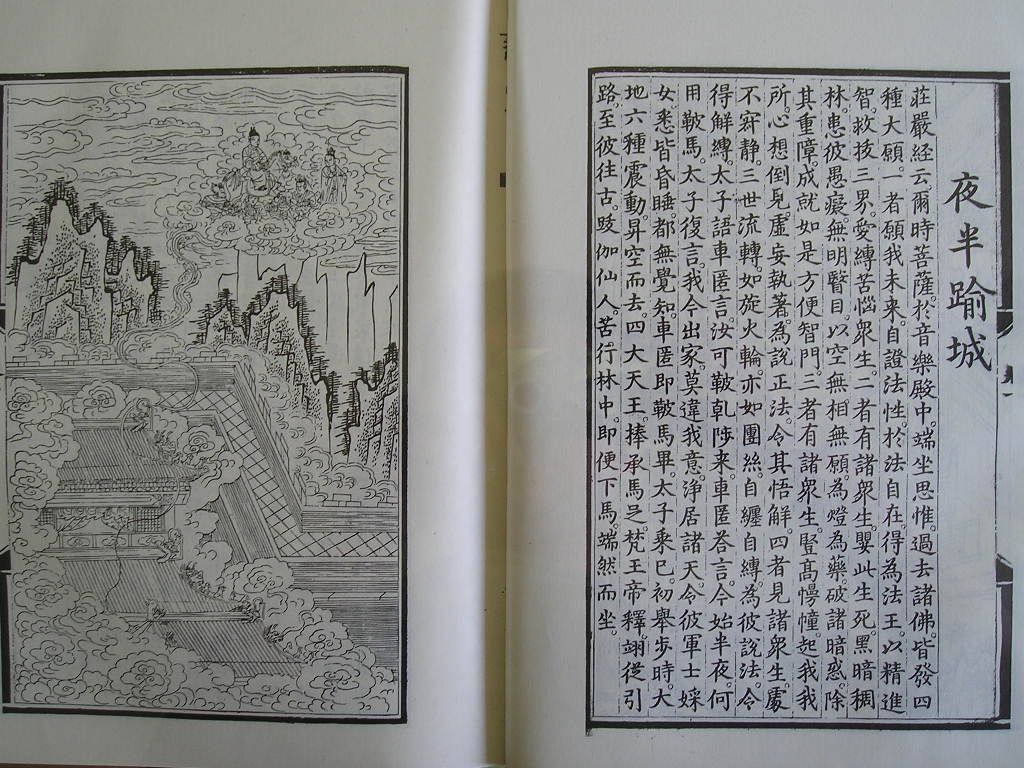 夜半踰城
莊嚴経云。爾時菩薩。於音樂殿中。端坐思惟。過去諸佛。皆發四
種大願。一者願我未来。自證法性。於法自在。得為法王。以精進
智。救拔三界。愛縛苦惱衆生。二者有諸衆生。嬰此生死。黑暗稠
林。患彼愚癡。無明瞖目。以空無相無願。為燈為藥。破諸暗惑。除
其重障。成就如是方便智門。三者有諸衆生。豎髙慢幢。起我我
所。心想倒見。虛妄執著。為說正法。令其悟解。四者見諸衆生。處
不寂静。三世流轉。如旋火輪。亦如團絲。自纏自縛。為彼說法。令
得解縛。太子語車匿言。汝可鞁乹陟来。車匿荅言。今始半夜。何
用鞁馬。太子復言。我今出家。莫違我意。淨居諸天。令彼軍士婇
女。悉皆昏睡。都無覺知。車匿即鞁馬畢。太子乘已。初舉步時。大
地六種震動。昇空而去。四大天王。捧承馬足。梵王帝釋。翊從引
路。至彼往古跋伽仙人。苦行林中。即便下馬。端然而坐。